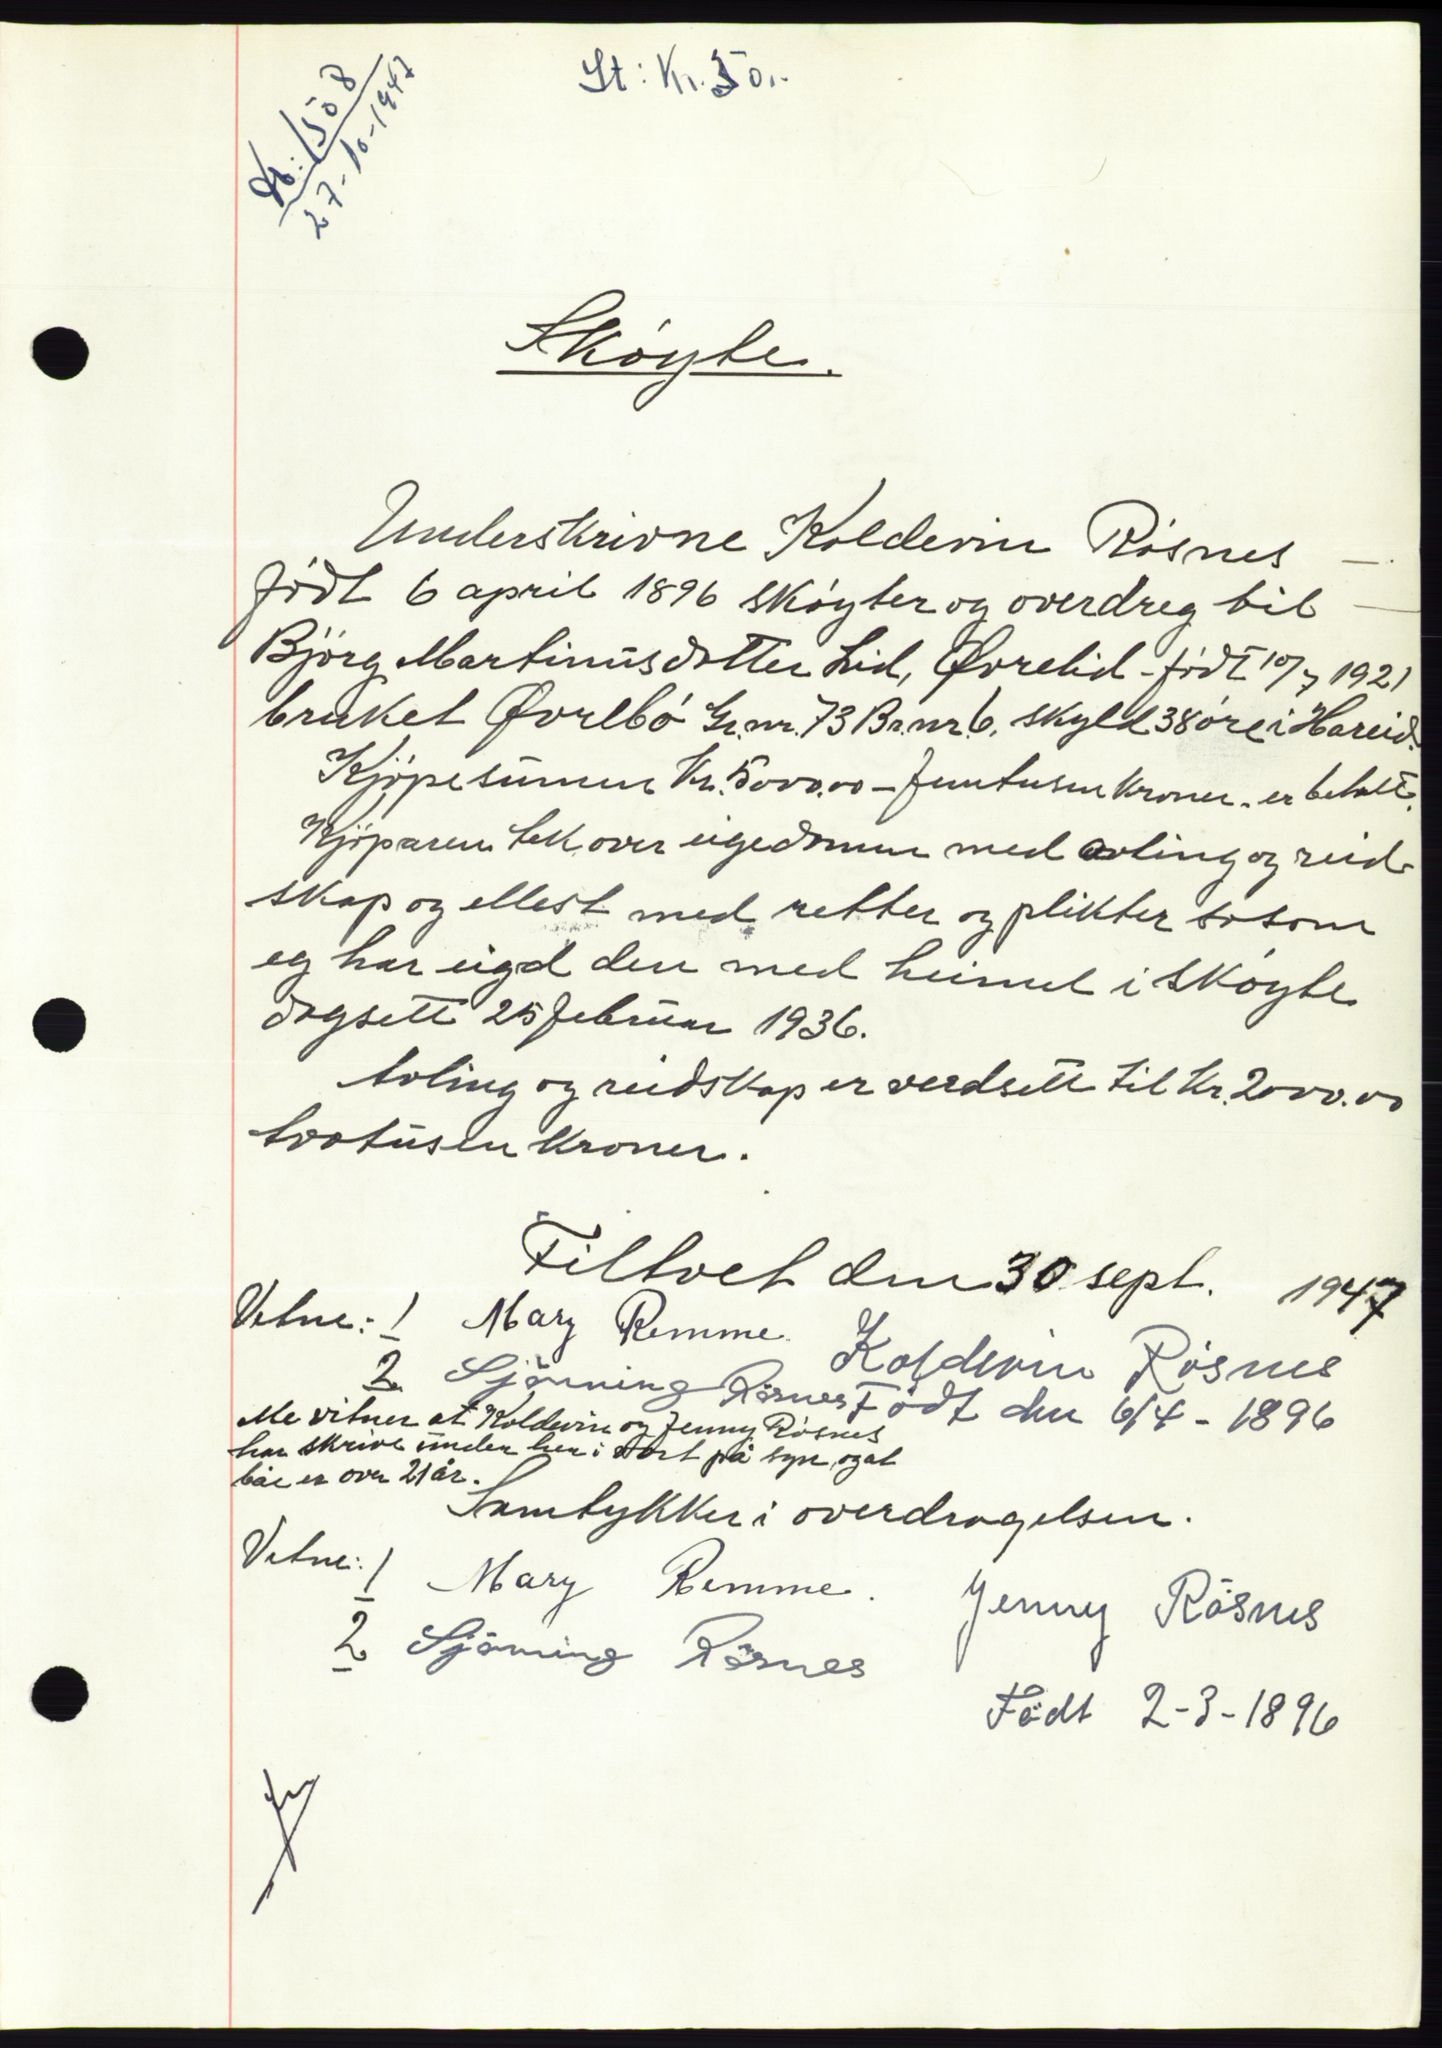 St: Kr. 50.-
Db: 1508
27-10-1947
Skøyte.
Underskrivne Koldevin Røsnes
født 6 april 1896 skøyter og overdreg til
Bjørg Martinusdotter Lid, Øvrelid - født 10/7 1921
bruket Øvrebø Gr.nr. 73 Br.nr. 6. skyld 38 øre i Hareid.
Kjøpesumen kr. 5000.00 - femtusen kroner - er betalt.
Kjøparen tek over eigedomen med avling og reid-
skap og ellest med retter og plikter sosom
eg har eigd den med heimel i skøyte
dagsett 25 februar 1936.
Avling og reidskap er verdsett til kr. 2000.00
tvotusen kroner.
Filtvet den 30 sept. 1947
Vitne: 1 Mary Remme. Koldevin Røsnes
2 Sjönning Røsnes Födt den 6/4 - 1896
Me vitner at Koldevin og Jenny Røsnes
har skrive under her i vort på syn, og at
båe er over 21 år.
Samtykker i overdragelsen.
Vitne: 1 Mary Remme. Jenny Røsnes
2 Sjönning Røsnes
Födt 2-3-1896